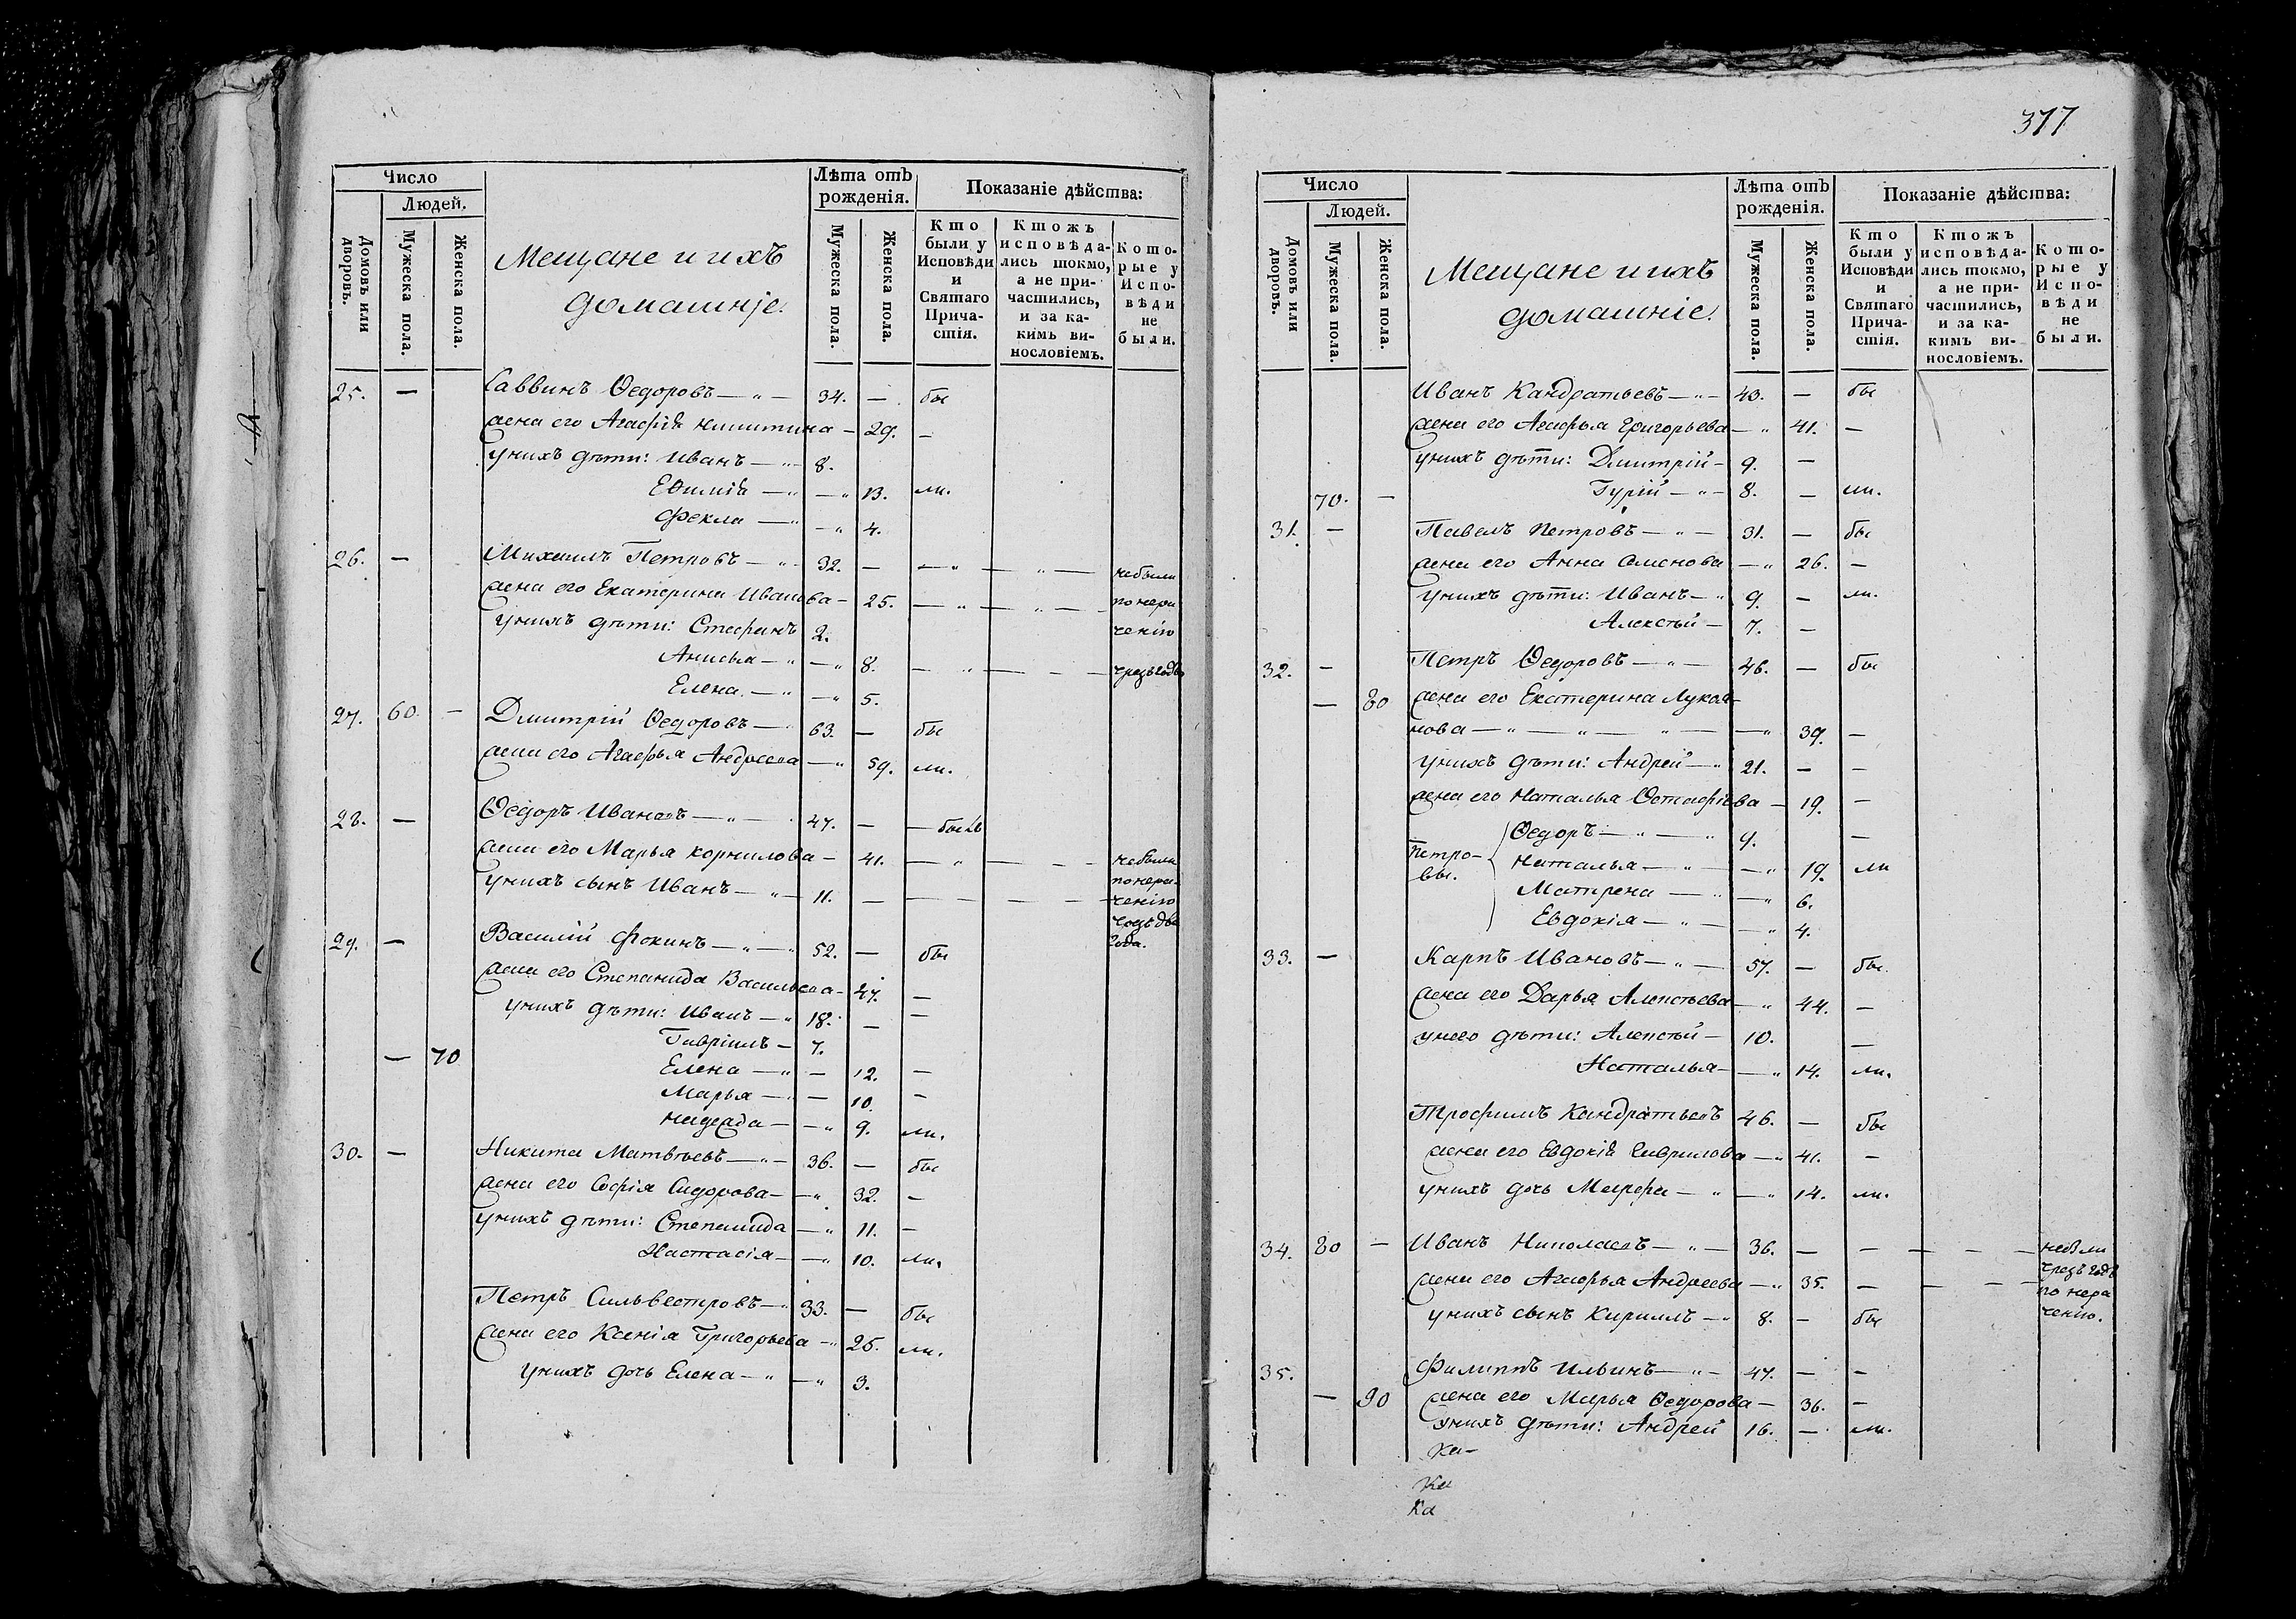 Число
Людей.
Домовъ или дворовъ.
Мужеска пола.
Женска пола.
Мещане и ихъ
домашніе.
Лѣта отъ
рожденія.
Мужеска пола.
Женска пола.
Показаніе дѣйства:
Кто
были у
Исповѣди
и
Святаго
Прича-
стія.
Ктожъ
исповѣда-
лись токмо,
а не при-
частились,
и за ка-
кимъ ви-
нословіемъ.
Кото-
рые у
Испо-
вѣди
не
были.
25. — Саввинъ Ѳедоровъ — „ — 34. — бы
жена его Агафія Никитина — 29. —
у нихъ дѣти: Иванъ — „ — 8.
Евѳимія — „ — „ 13. ли.
Фекла — „ — „ 4.
26. — Михаилъ Петровъ — „ 32. — — „ — „ — небыли
жена его Екатерина Иванова — 25. — „ — „ — по нера
у нихъ дѣти: Стефанъ 2. ченію
Анисья — „ — „ 8. — „ — — — чрезъ годъ
Елена — „ — „ 5.
27. 60. — Дмитрій Ѳедоровъ — 63. — бы
жена его Агафья Андреева — „ 59. ли.
28. — Ѳедоръ Ивановъ — „ — 47. — — былъ
жена его Марья Корнилова — 41. — „ — — — небыли
у нихъ сынъ Иванъ — „ — 11. — — — — — по нера-
ченію
чрезъ два
года.
29. — Василій Фокинъ — „ — „ 52. — бы
жена его Степанида Васильева — 47. —
у нихъ дѣти: Иванъ — „ 18. — —
Гавріилъ — 7.
— 70 Елена — „ — 12. —
Марья — — 10. —
Надежда — — „ 9. ли.
30. — Никита Матвѣевъ — „ — 36. — бы
жена его Софія Сидорова — — „ 32. —
у нихъ дѣти: Степанида — „ 11. —
Настасія — — „ 10. ли.
Петръ Сильвестровъ — „ 33. — бы
жена его Ксенія Григорьева — „ 25. ли.
у нихъ дочь Елена — „ — „ 3.
377
Число
Людей.
Домовъ или дворовъ.
Мужеска пола.
Женска пола.
Мещане и ихъ
домашніе.
Лѣта отъ
рожденія.
Мужеска пола.
Женска пола.
Показаніе дѣйства:
Кто
были у
Исповѣди
и
Святаго
Прича-
стія.
Ктожъ
исповѣда-
лись токмо,
а не при-
частились,
и за ка-
кимъ ви-
нословіемъ.
Кото-
рые у
Испо-
вѣди
не
были.
Иванъ Кандратьевъ — „ — 43. — бы
жена его Агафья Григорьева — „ 41. —
у нихъ дѣти: Дмитрій — 9. —
70. — Гурій — „ — 8. — ли.
31. — Павелъ Петровъ — „ — 31. — бы
жена его Анна Семенова — „ 26. —
у нихъ дѣти: Иванъ — „ 9. — ли.
Алексѣй — 7. —
32. — Петръ Ѳедоровъ — „ — 46. — бы
— 80 жена его Екатерина Лукоя-
нова — „ — „ — „ — — „ 39. —
у нихъ дѣти: Андрей — „ 21. — —
жена его Наталья Остафіева — 19. —
Петро-
вы.
Ѳедоръ — „ — „ 9. —
Наталья — „ — „ 19. ли
Матрена — „ — „ 6.
Евдокія — „ — — „ 4.
33. — Карпъ Ивановъ — „ — 57. — бы.
жена его Дарья Алексѣева — „ 44. —
у него дѣти: Алексѣй — 10. —
Наталья — — „ 14. ли.
Трофимъ Кандратьевъ 46. — бы
жена его Евдокія Гаврилова — „ 41. —
у нихъ дочь Марфа — „ — „ 14. ли.
34. 80 — Иванъ Николаевъ — „ — 36. — — — — — небыли
чрезъ годъ
жена его Агафья Андреева — „ 35. — — — — по нера
у нихъ сынъ Кириллъ — „ 8. — бы ченію.
35. Филиппъ Ильинъ — „ — 47. — —
— 90 жена его Марья Ѳедорова — 36. —
у нихъ дѣти: Андрей 16. — ли.
Ка-
Ка
Ка